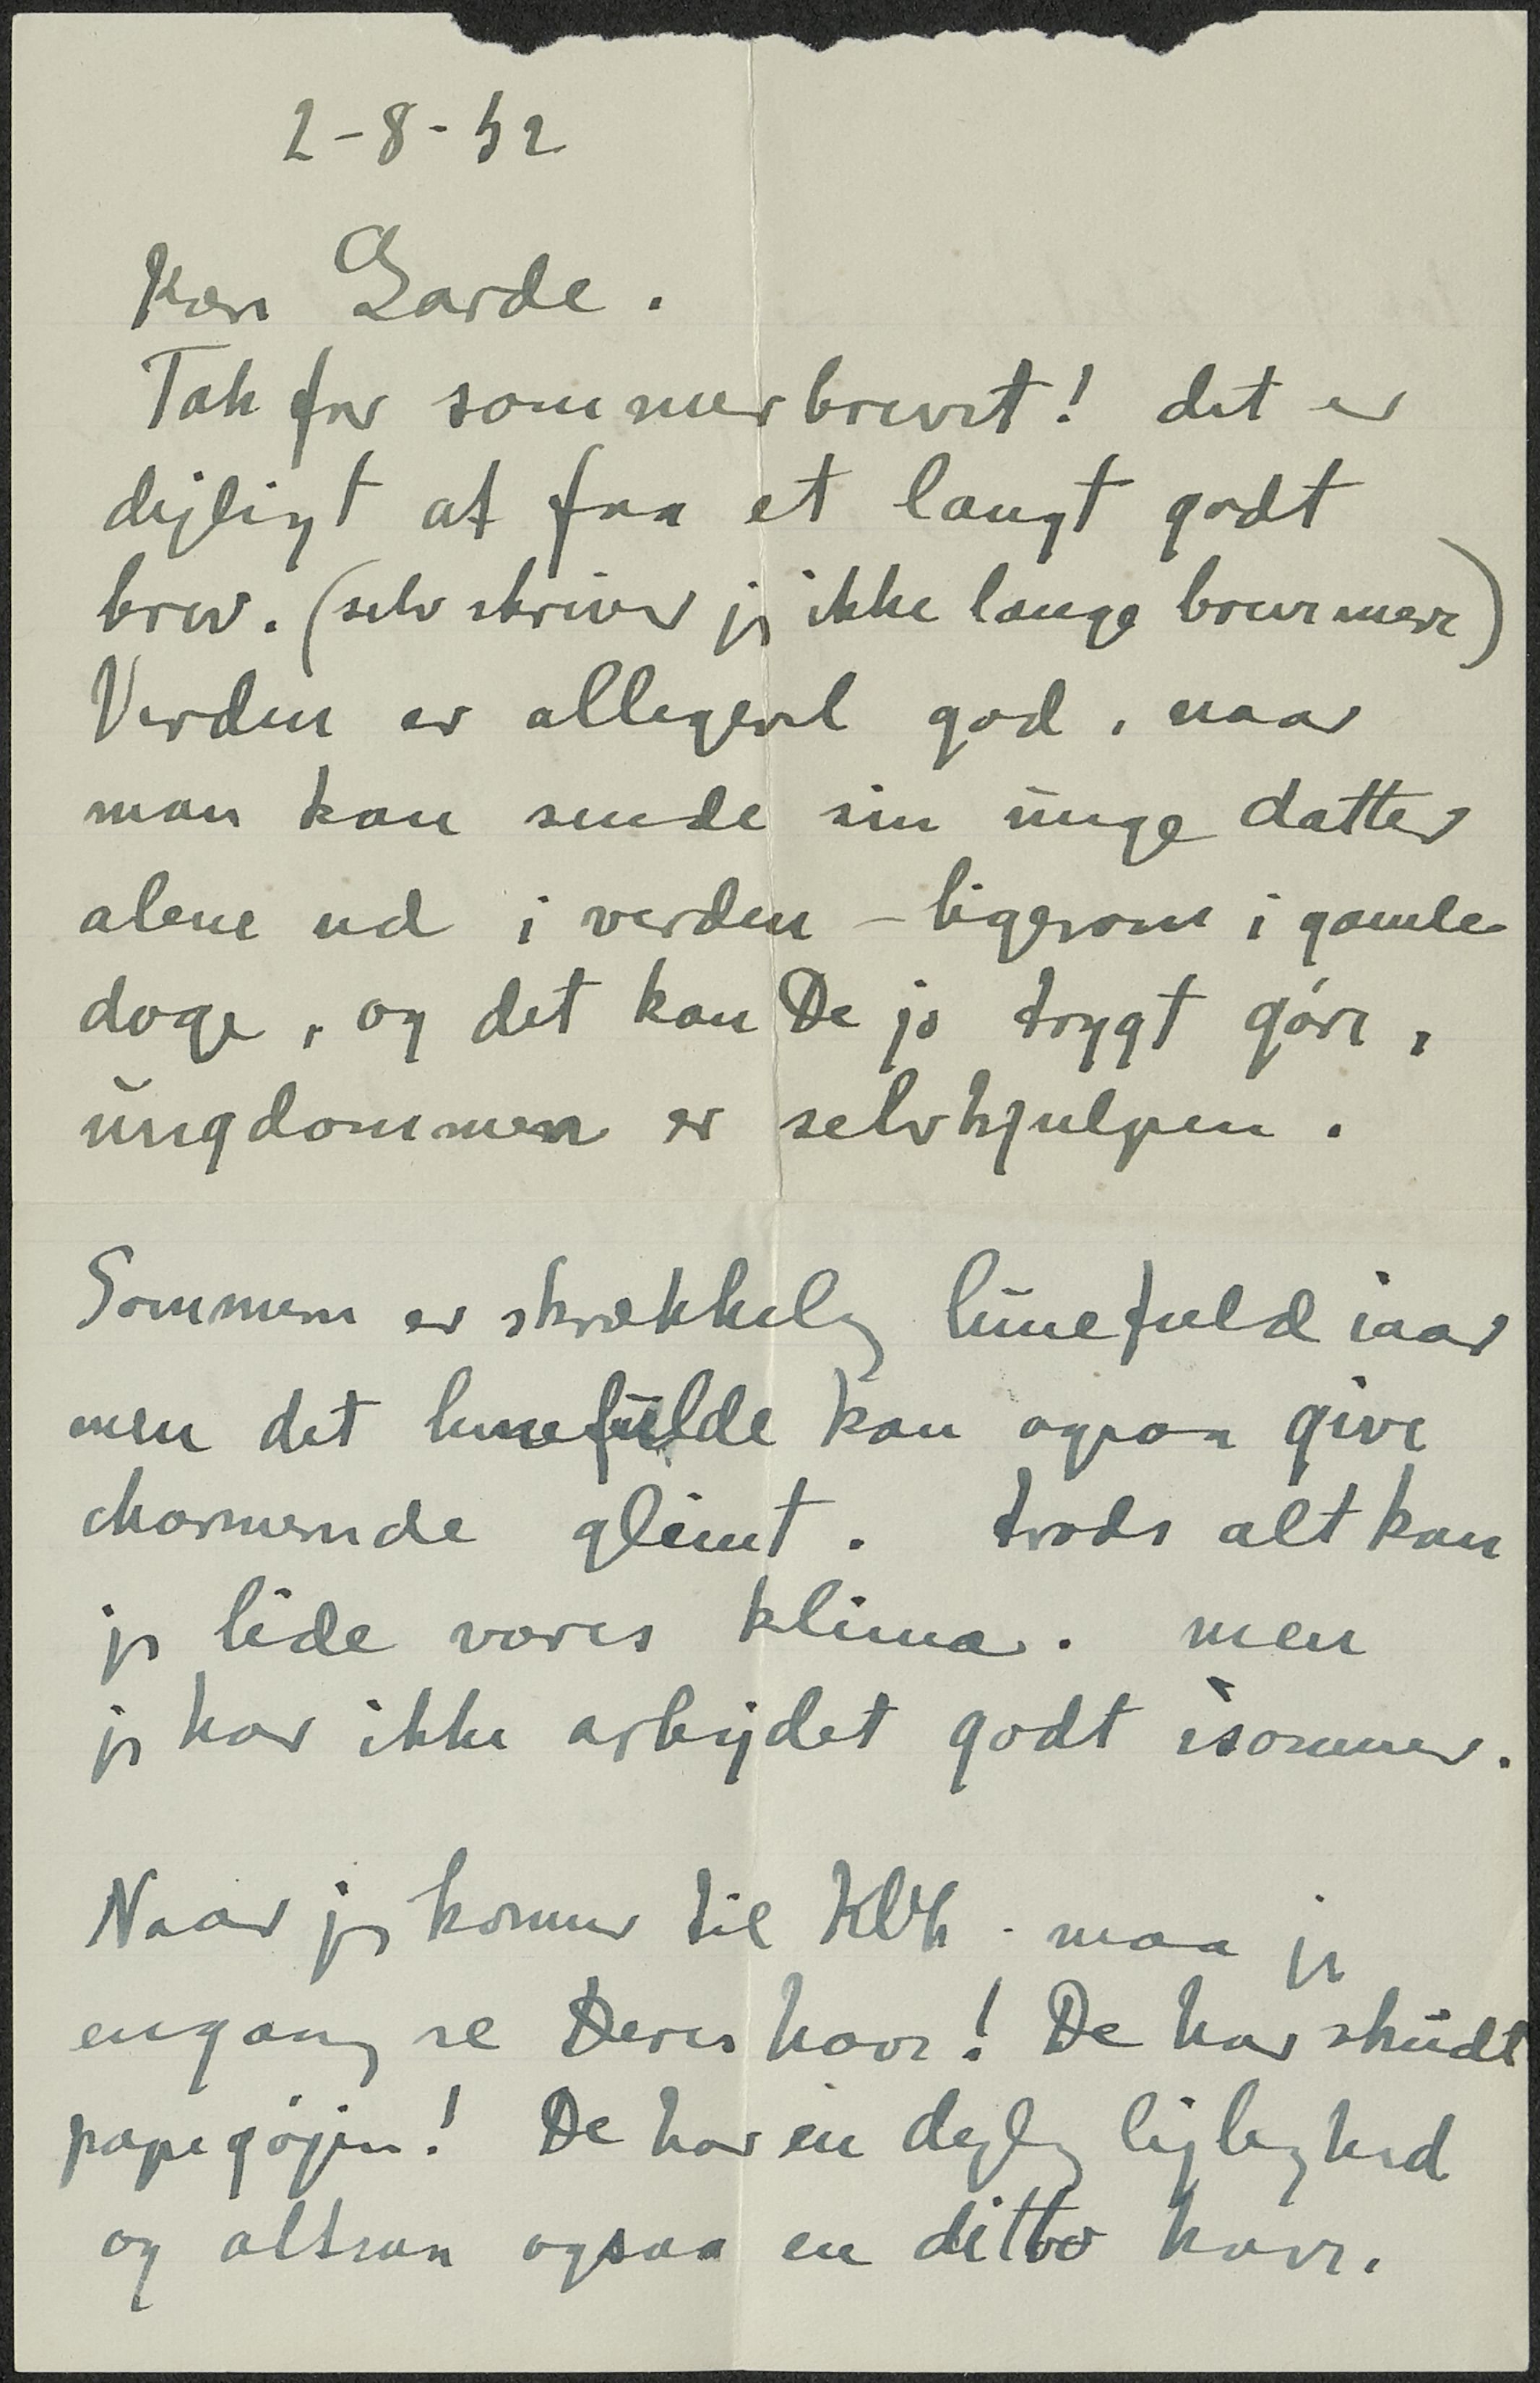 2-8-52
Kære Garde.
Tak for sommerbrevet! det er
dejligt at faa et langt godt
brev. (selv skriver jeg ikke lange breve mere)
Verden er alligevel god, naar
man kan sende sin unge datter
alene ud i verden – ligesom i gamle
dage, og det kan De jo trygt gøre,
ungdommen er selvhjulpen.
Sommeren er skrækkelig lunefuld iaar
men det lunefulde kan ogsaa give
charmerende glimt. trods alt kan
jeg lide vores klima. men
jeg har ikke arbejdet godt isommer.
Naar jeg kommer til Kbh. maa jeg
engang se Deres have! De har skudt
papegøjen! De har en dejlig lejlighed
og altsaa ogsaa en ditto have.